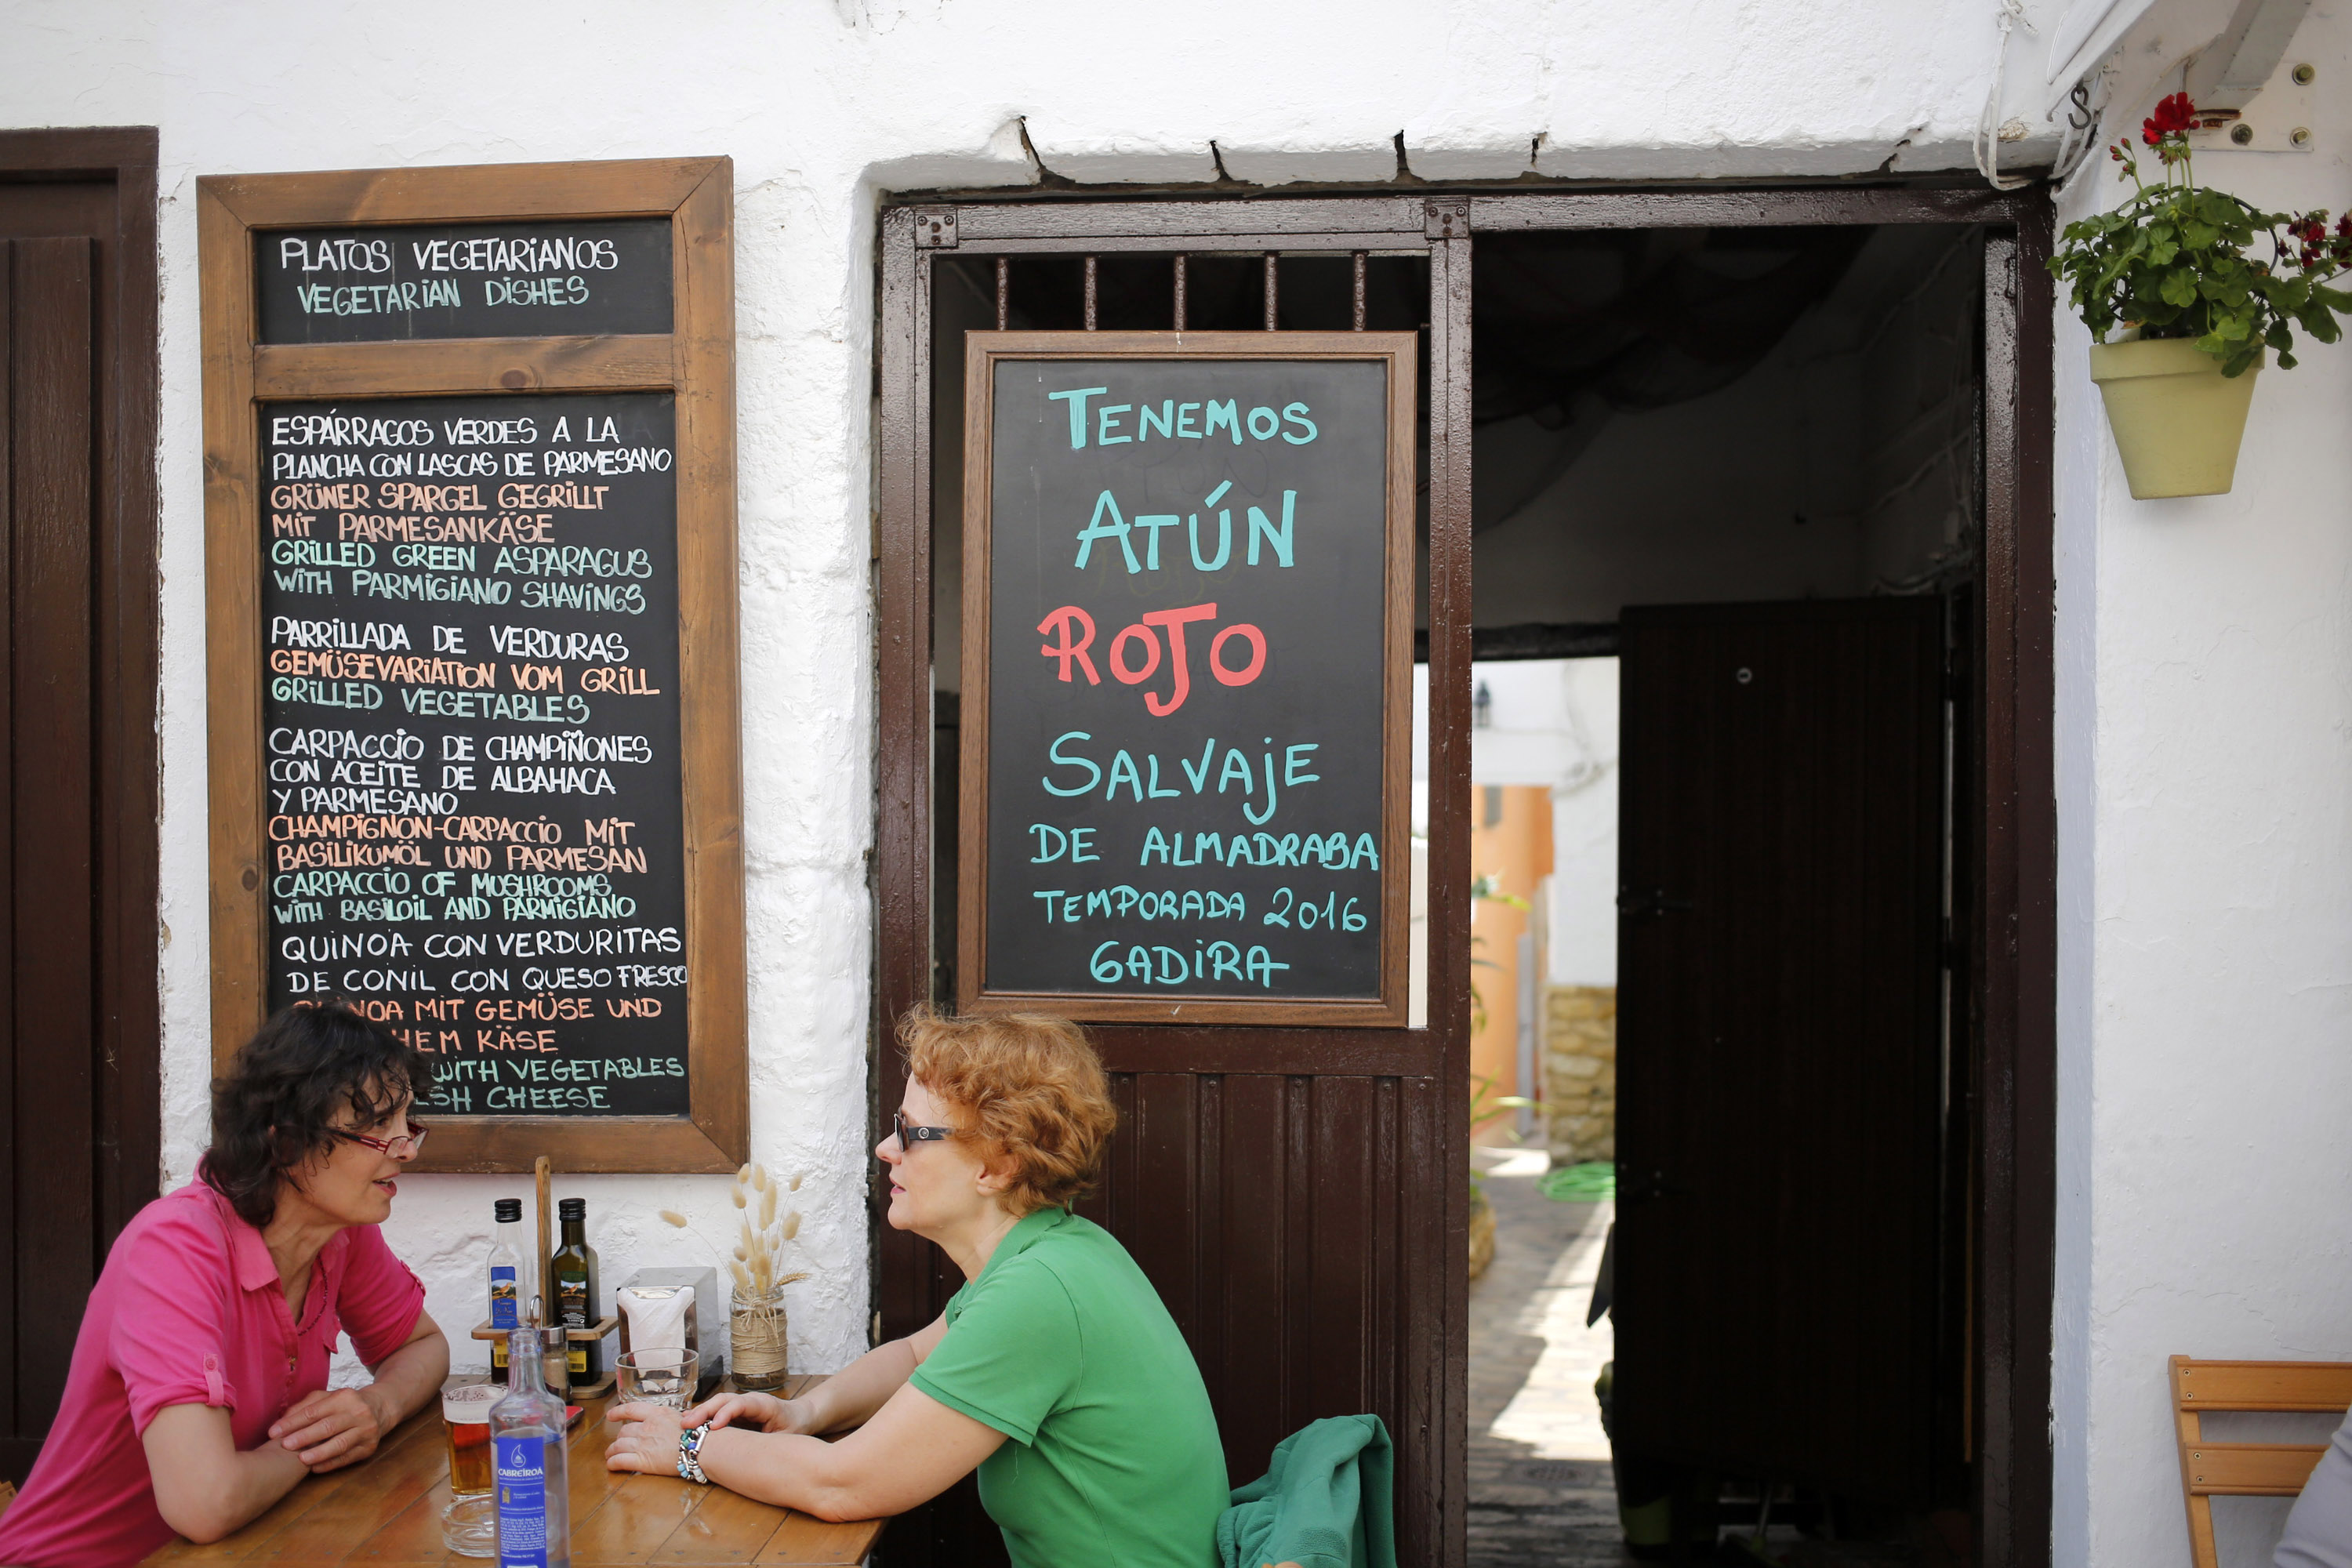 PLATOS VEGETARIANOS
VEGETARIAN DISHES
ESPÁRRAGOS VERDES A LA
PLANCHA CON LASCAS DE PARMESANO
GRÜNER SPARGEL GEGRILLT
MIT PARMESANKÄSE
GRILLED GREEN ASPARAGUS
WITH PARMIGIANO SHAVINGS
PARRILLADA DE VERDURAS
GEMÜSEVARIATION VOM GRILL
GRILLED VEGETABLES
CARPACCIO DE CHAMPIÑONES
CON ACEITE DE ALBAHACA
Y PARMESANO
CHAMPIGNON-CARPACCIO MIT
BASILIKUMÖL UND PARMESAN
CARPACCIO OF MUSHROOMS
WITH BASILOIL AND PARMIGIANO
QUINOA CON VERDURITAS
DE CONIL CON QUESO FRESCO
MIT GEMÜSE UND
KÄSE
WITH VEGETABLES
CHEESE
TENEMOS
ATÚN
ROJO
SALVAJE
DE ALMADRABA
TEMPORADA 2016
GADIRA
CABREIROÁ